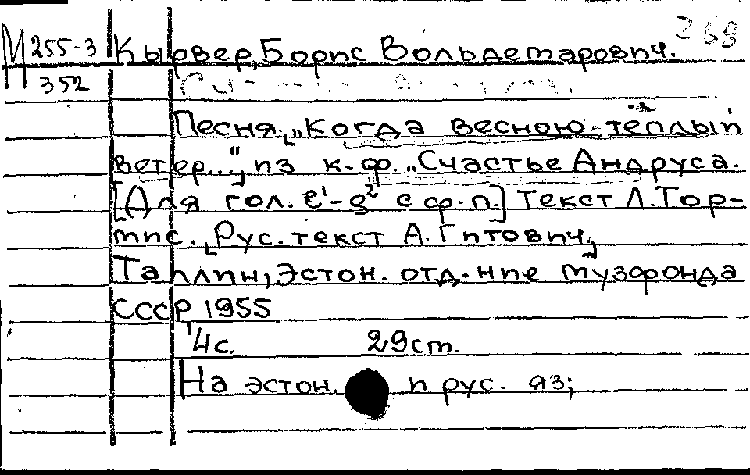 М 255-3 Кырвер, Борис Вольдемарович.
352
Песня „Когда весною тёплый
ветер...", из к-ф. „Счастье Андруса.
[Для гол. e¹-g² с ф-п.] Текст Л. Тор-
мис. „Рус. текст А. Гитович„
Таллин, Эстон. отд-ние музфонда
СССР 1955
4 с. 29 см.
На эстон. и рус. яз;